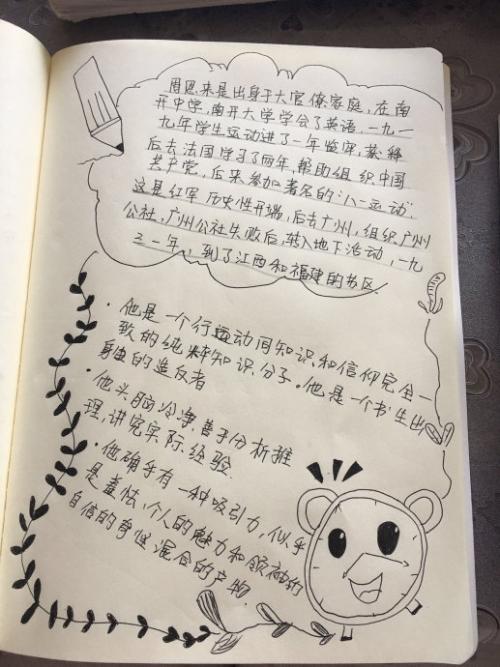 周恩来是出身于大官僚家庭，在南
开中学，南开大学学会了英语，一九一
九年学生运动进了一年监牢，获释
后去法国学习了两年，帮助组织中国
共产党，后来参加著名的“八一运动”，
这是红军历史性开端，后去广州，组织广州
公社，广州公社失败后，转入地下活动，一九
三一年，到了江西和福建的苏区.
·他是一个行运动同知识和信仰完全一
致的纯粹知识分子。他是一个书生出
身的造反者
·他头脑冷净善于分析推
理，讲究实际经验.
·他确乎有一种吸引力，似乎
是羞怯，个人的魅力和领袖的
自信的奇怪混合的产物.